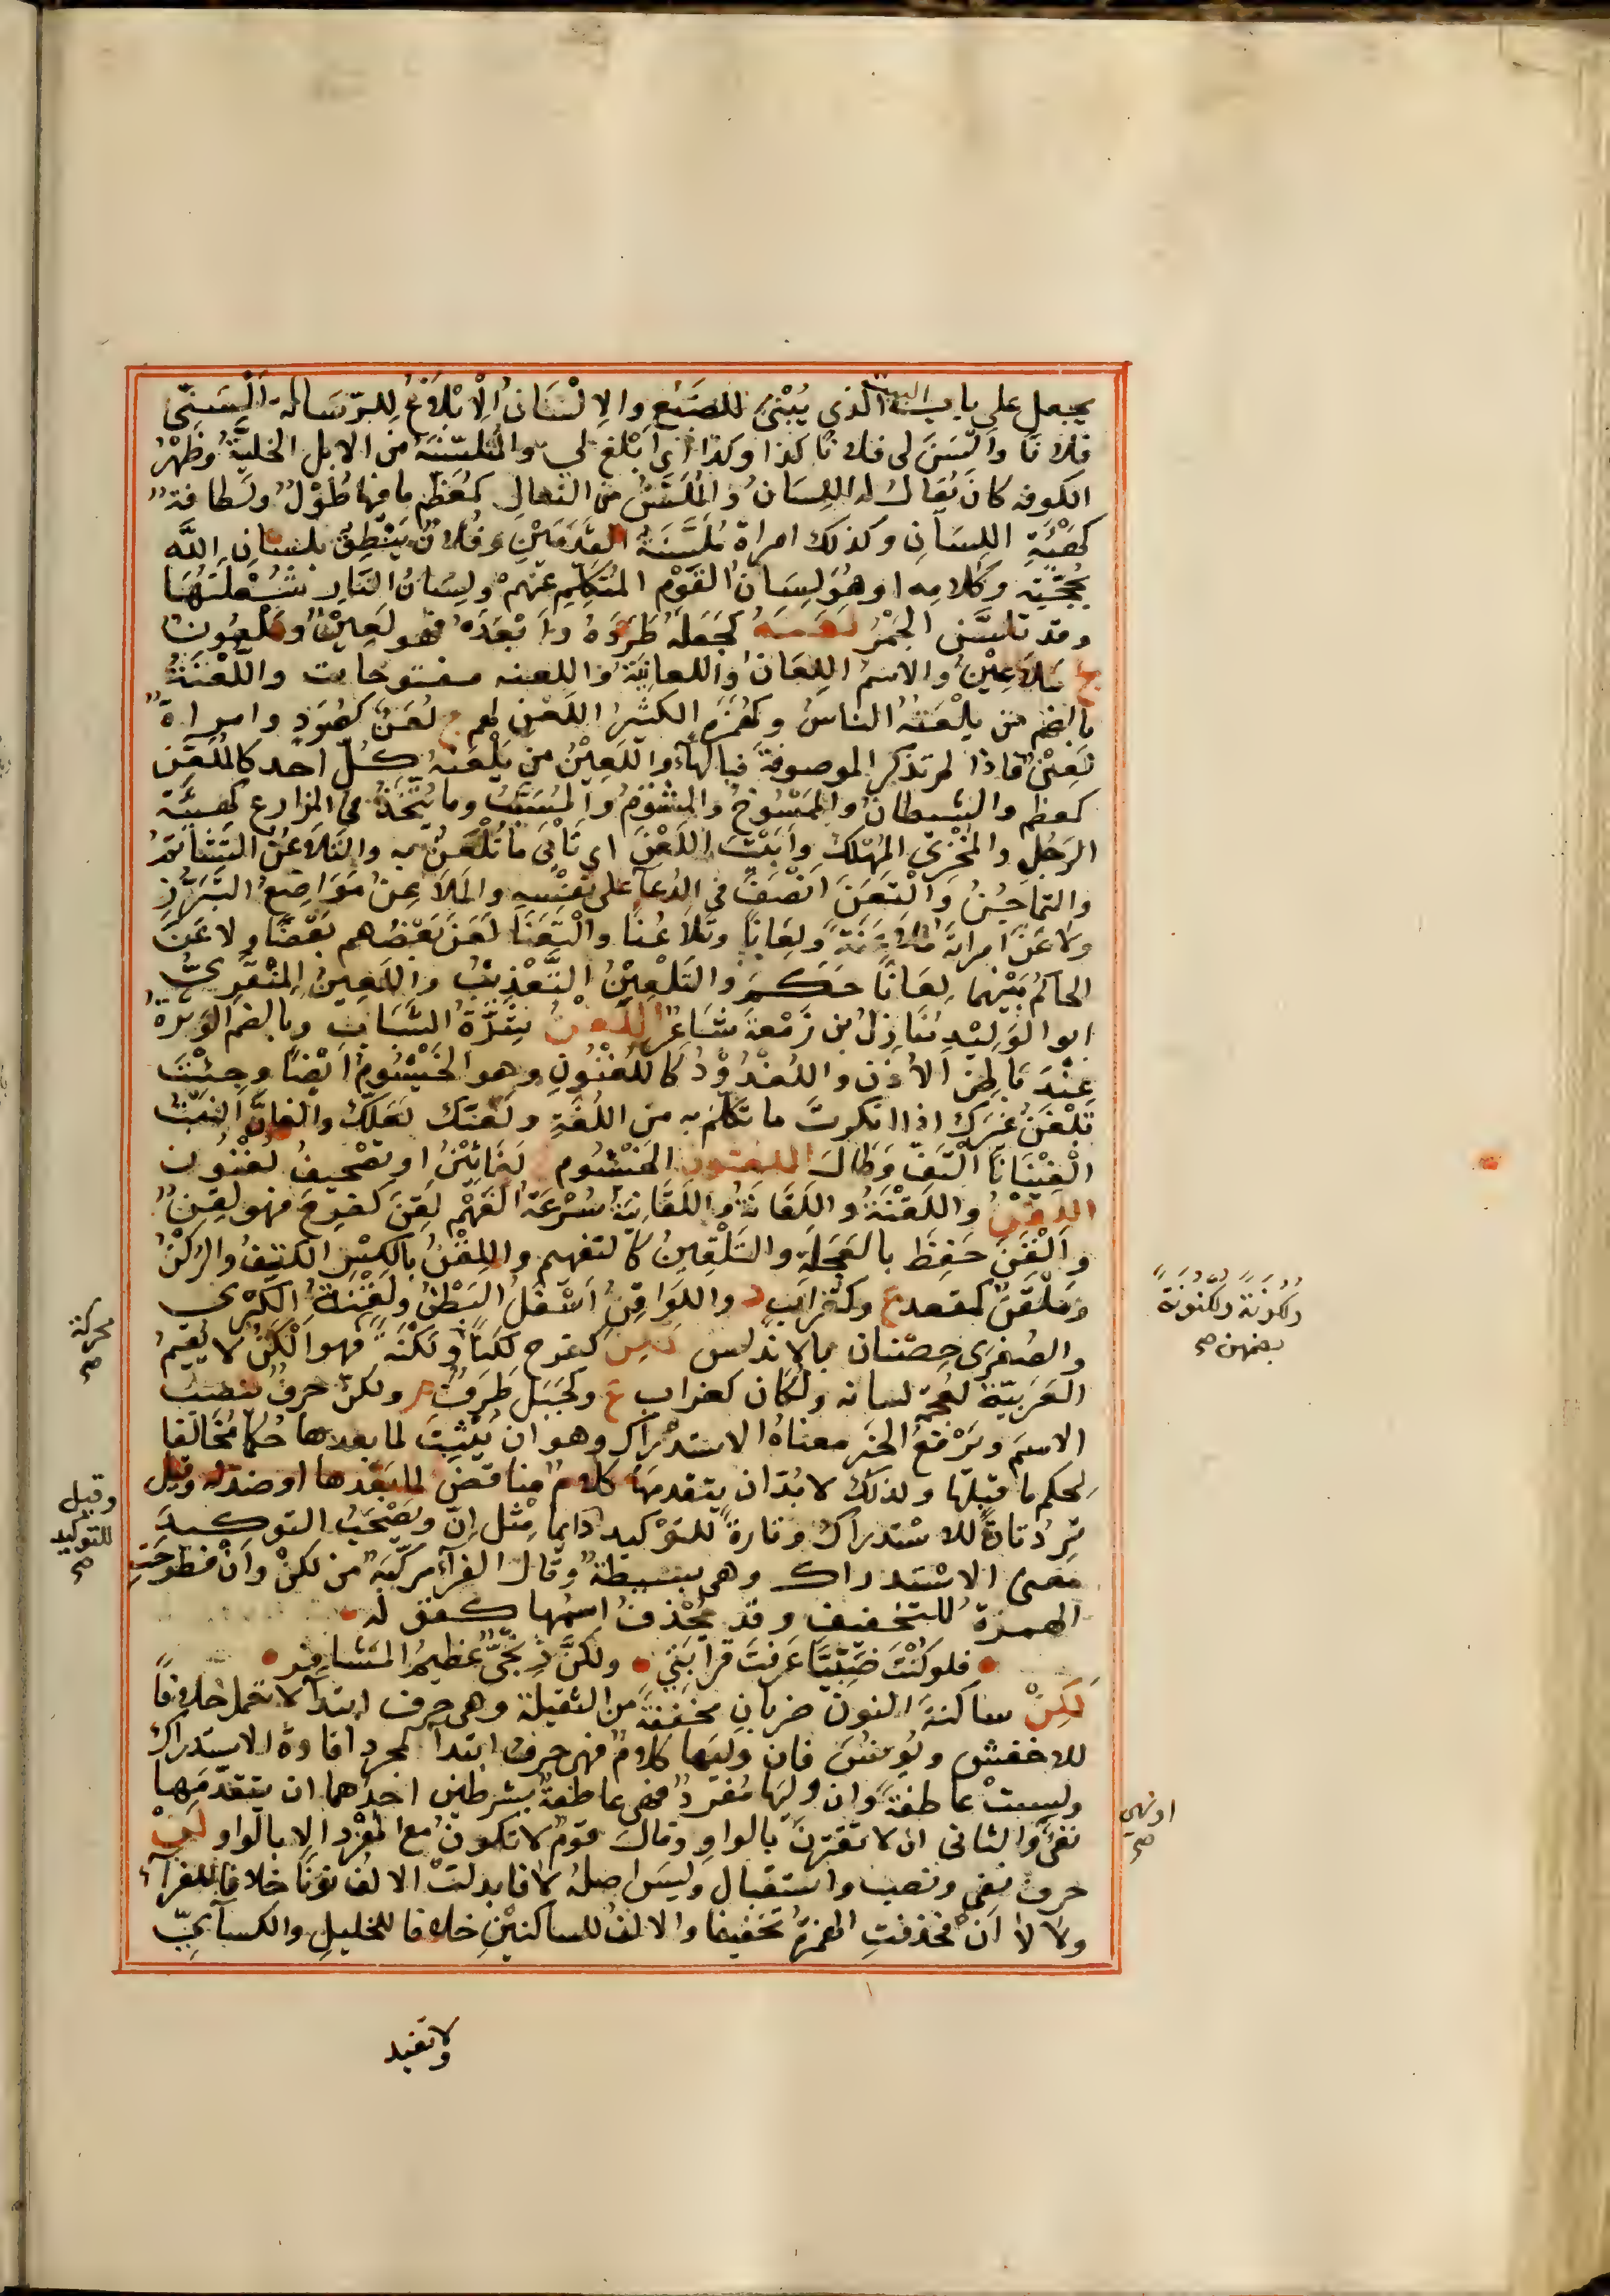 يجعل على باب البيت الذي يُبْنى للضبع والالسان الابلاغ للرسالة الْسِنّي
فلانا والسن لي فلانا كذا وكذا اي ابلغ لي والمتلسنة من الابل الخلية وظهر
الكوفه كان يقال له اللسان والملسن من النعال كمعظم ما فيها طول ولطافة
كهيئة اللسان وكذلك امراة ملسنة القدمين وفلان ينطق بلسان الله
بحجته وكلامه او هو لسان القوم المتكلم عنهم ولسان النار شعلتها
وقد تلسن الجمر لعنه كجعله طرده وابعده فهو لعين وملعون
ج ملاعين والاسم اللعان واللعانية واللعنه مفتوحات واللعنة
بالضم من يلعنه الناس وكهمزة الكثير اللعن لهم ج لعن كصرد وامراة
لعين فاذا لم تذكر الموصوفة فبالهاء واللعين من يلعنه كل احد كالملعن
كمعظم والشيطان والممسوخ والمشؤم والمسيب وما يتخذ في المزارع كهيئة
الرجل والمخزى المهلك وابيت اللعن اي تاتى ما تلعن به والتلاعن التشاتم
والتماجن والتعن انصف في الدعا على نفسه والملاعن مواضع التبرز
ولاعن امراته ملاعنة ولعانا وتلاعنا والتعنا لعن بعضهم بعضا ولاعن
الحاكم بينهما لعانا حكم والتلعين التعذيب واللعين المنقري
ابو الوليد منازل بن زمعة شاعر اللغن شرة الشباب وبالضم الوترة
عند باطن الاذن واللغدود كاللغنون وهو الخيشوم ايضا وجئت
تلغن غيرك اذا انكرت ما تكلم به من اللغة ولغنك لعلك والغان النبت
الغينانا التف وطال اللغنون الخيشوم لغانين او تصحيف لغنون
اللقن واللقنة واللقانة واللقانية سرعة الفهم لقن كفرح فهو لقن
والقن حفظ بالعجلة والتلقين كالتفهيم واللقن بالكسر الكنف والركن
وملقن كمقعد ع وكغراب د واللواقن اسفل البطن ولقنة الكبرى
والصغرى حصنان بالاندلس لكن كفرح لكنا ولكنة فهو الكن لا يقيم
العربية لعجمة لسانه ولكان كغراب ع وكجبل ظرف م ولكن حرف ينصب
الاسم ويرفع الخبر معناه الاستدراك وهو ان يثبت لما بعدها حكما مخالفا
لحكم ما قبلها ولذلك لا بد ان يتقدمها كلام مناقض لما بعدها او ضد له وقيل
ترد تارة للاستدراك وتارة للتوكيد دايما مثل ان ويصحب التوكيد
معنى الاستدراك وهي بسيطة وقال الفراء مركبة من لكن وان فطرحت
الهمزة للتخفيف وقد يحذف اسمها كقوله
فلو كنت ضبيا عرفت قرابتي ولكن زنجي عظيم المشافر
لكن ساكنة النون ضربان مخففة من الثقيلة وهي حرف ابتدا لا تعمل خلافا
للاخفش ويونس فان وليها كلام فهي حرف ابتدا لمجرد افادة الاستدراك
وليست عاطفة وان وليها مفرد فهي عاطفة بشرطين احدهما ان يتقدمها
نفي والثاني ان لا تقترن بالواو وقال قوم لا تكون مع المفرد الا بالواو لن
حرف نفي ونصب واستقبال وليس اصله لا فابدلت الالف نونا خلافا للفراء
ولا لا ان فحذفت الهمزة تخفيفا والالف للساكنين خلافا للخليل والكسائي
ولا تفيد
ولكونة ولكنونة
بضمهن صح
محركة
صح
وقيل
للتوكيد
صح
او نهي
صح